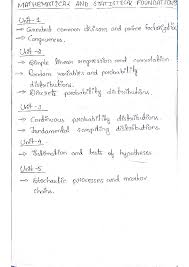 MATHEMATICAL AND STATISTICAL FOUNDATIONS
Unit-1
→ Greatest common divisors and prime factorization
→ Congruences.
Unit-2
→ Simple linear regression and correlation
→ Random variables and probability
distributions.
→ Discrete probability distributions.
Unit-3
→ Continuous probability distributions.
→ Fundamental sampling distributions.
Unit-4
→ Estimation and tests of hypotheses
Unit-5
→ Stochastic processes and markov
chains.